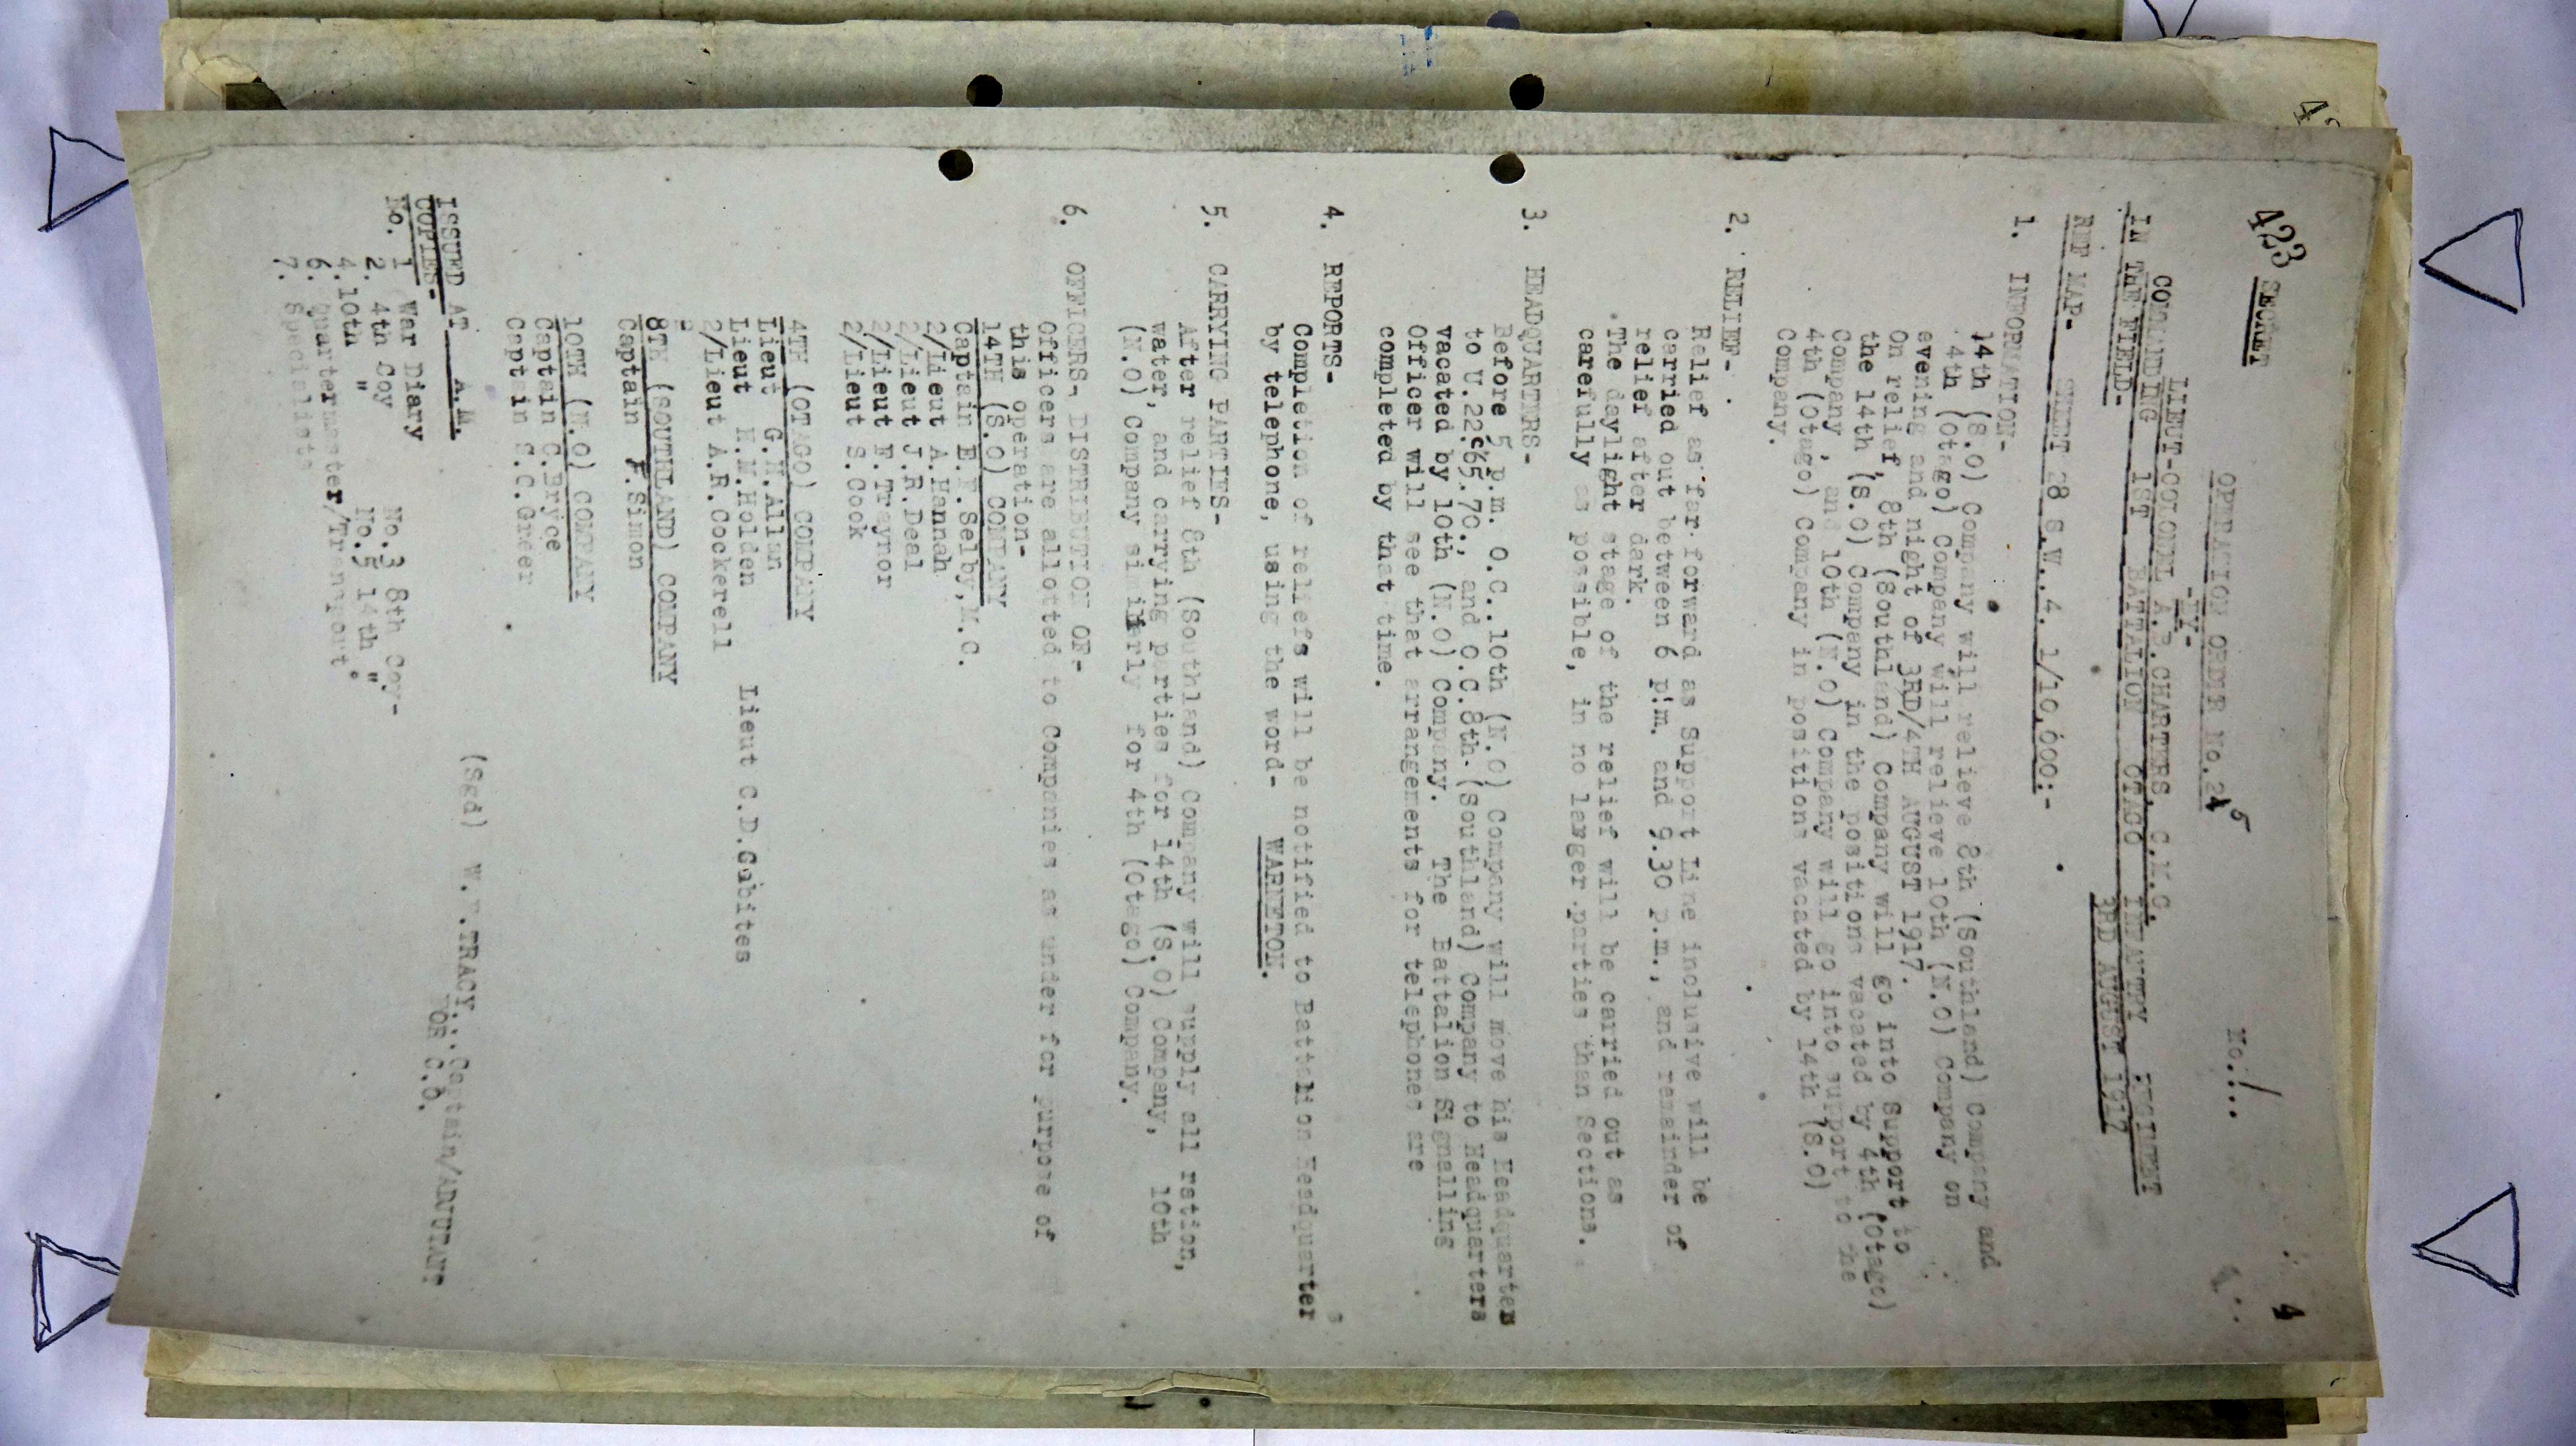 423 SECRET
4
OPERATION ORDER No.25
No.1..
-BY-
LIEUT-COLONEL A.B.CHARTERS, C.M.G.
COMMANDING 1ST BATTALION OTAGO INFANTRY REGIMENT
IN THE FIELD-
3RD AUGUST 1917
REF MAP- SHEET 28 S.W..4. 1/10,000:-
1. INFORMATION-
14th (S.O) Company will relieve 8th (Southland) Company and
4th (Otago) Company will relieve 10th (N.O) Company on
evening and night of 3RD/4TH AUGUST 1917.
On relief, 8th (Southland) Company will go into Support to
the 14th (S.O) Company in the positions vacated by 4th (Otago)
Company, and 10th (N.O) Company will go into support to the
4th (Otago) Company in positions vacated by 14th (S.O)
Company.
2. RELIEF-
Relief as far forward as Support Line inclusive will be
carried out between 6 p.m. and 9.30 p.m., and remainder of
relief after dark.
The daylight stage of the relief will be carried out as
carefully as possible, in no larger parties than Sections.
3. HEADQUARTERS-
Before 5 p.m. O.C..10th (N.O) Company will move his Headquarters
to U.22.c.65.70., and O.C.8th (Southland) Company to Headquarters
vacated by 10th (N.O) Company. The Battalion Signalling
Officer will see that arrangements for telephones are
completed by that time.
4. REPORTS-
Completion of reliefs will be notified to Battalion Headquarters
by telephone, using the word- WARNETON.
5. CARRYING PARTIES-
After relief 8th (Southland) Company will supply all ration,
water, and carrying parties for 14th (S.O) Company, 10th
(N.O) Company similarly for 4th (Otago) Company.
6. OFFICERS- DISTRIBUTION OF-
Officers are allotted to Companies as under for purpose of
this operation-
14TH (S.O) COMPANY
Captain E.F.Selby,M.C.
2/Lieut A.Hannah
2/Lieut J.R.Deal
2/Lieut E.Traynor
2/Lieut S.Cook
4TH (OTAGO) COMPANY
Lieut G.N.Allan
Lieut H.M.Holden Lieut C.D.Gibites
2/Lieut A.R.Cockerell
8TH (SOUTHLAND) COMPANY
Captain F.Simon
10TH (N.O) COMPANY
Captain C.Bryce
Captain S.C.Greer
(Sgd) W.F.TRACY...Captain/ADJUTANT
FOR C.O.
ISSUED AT ____ A.M.
COPIES-
No. 1 War Diary
2. 4th Coy No.3 8th Coy-
4. 10th " No.5 14th "
6. Quartermaster/Transport.
7. Specialists